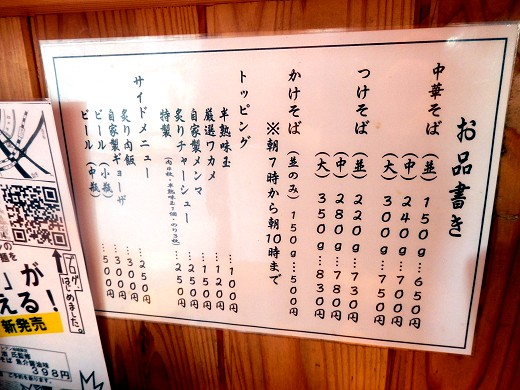 お品書き
中華そば（並）１５０ｇ…６５０円
（中）２４０ｇ…７００円
（大）３００ｇ…７５０円
つけそば（並）２２０ｇ…７３０円
（中）２８０ｇ…７８０円
（大）３５０ｇ…８３０円
かけそば（並のみ）１５０ｇ…５００円
※朝７時から朝１０時まで
トッピング
半熟味玉…１００円
厳選ワカメ…１２０円
自家製メンマ…１５０円
炙りチャーシュー…２５０円
特製（肉６枚・半熟味玉１個・のり３枚）…２５０円
サイドメニュー
炙り肉飯…２５０円
自家製ギョーザ…３００円
ビール（小瓶）…３００円
ビール（中瓶）…５００円
ブログ、はじめました。
が
える！
新発売
３９８円